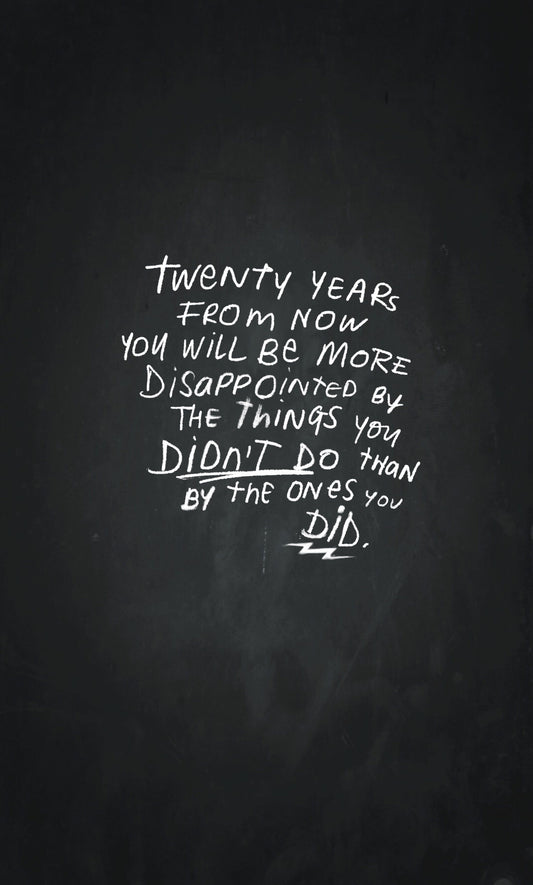 TWENTY YEARS
FROM NOW
YOU WILL BE MORE
DISAPPOINTED BY
THE THINGS YOU
DIDN'T DO THAN
BY THE ONES YOU
DID.